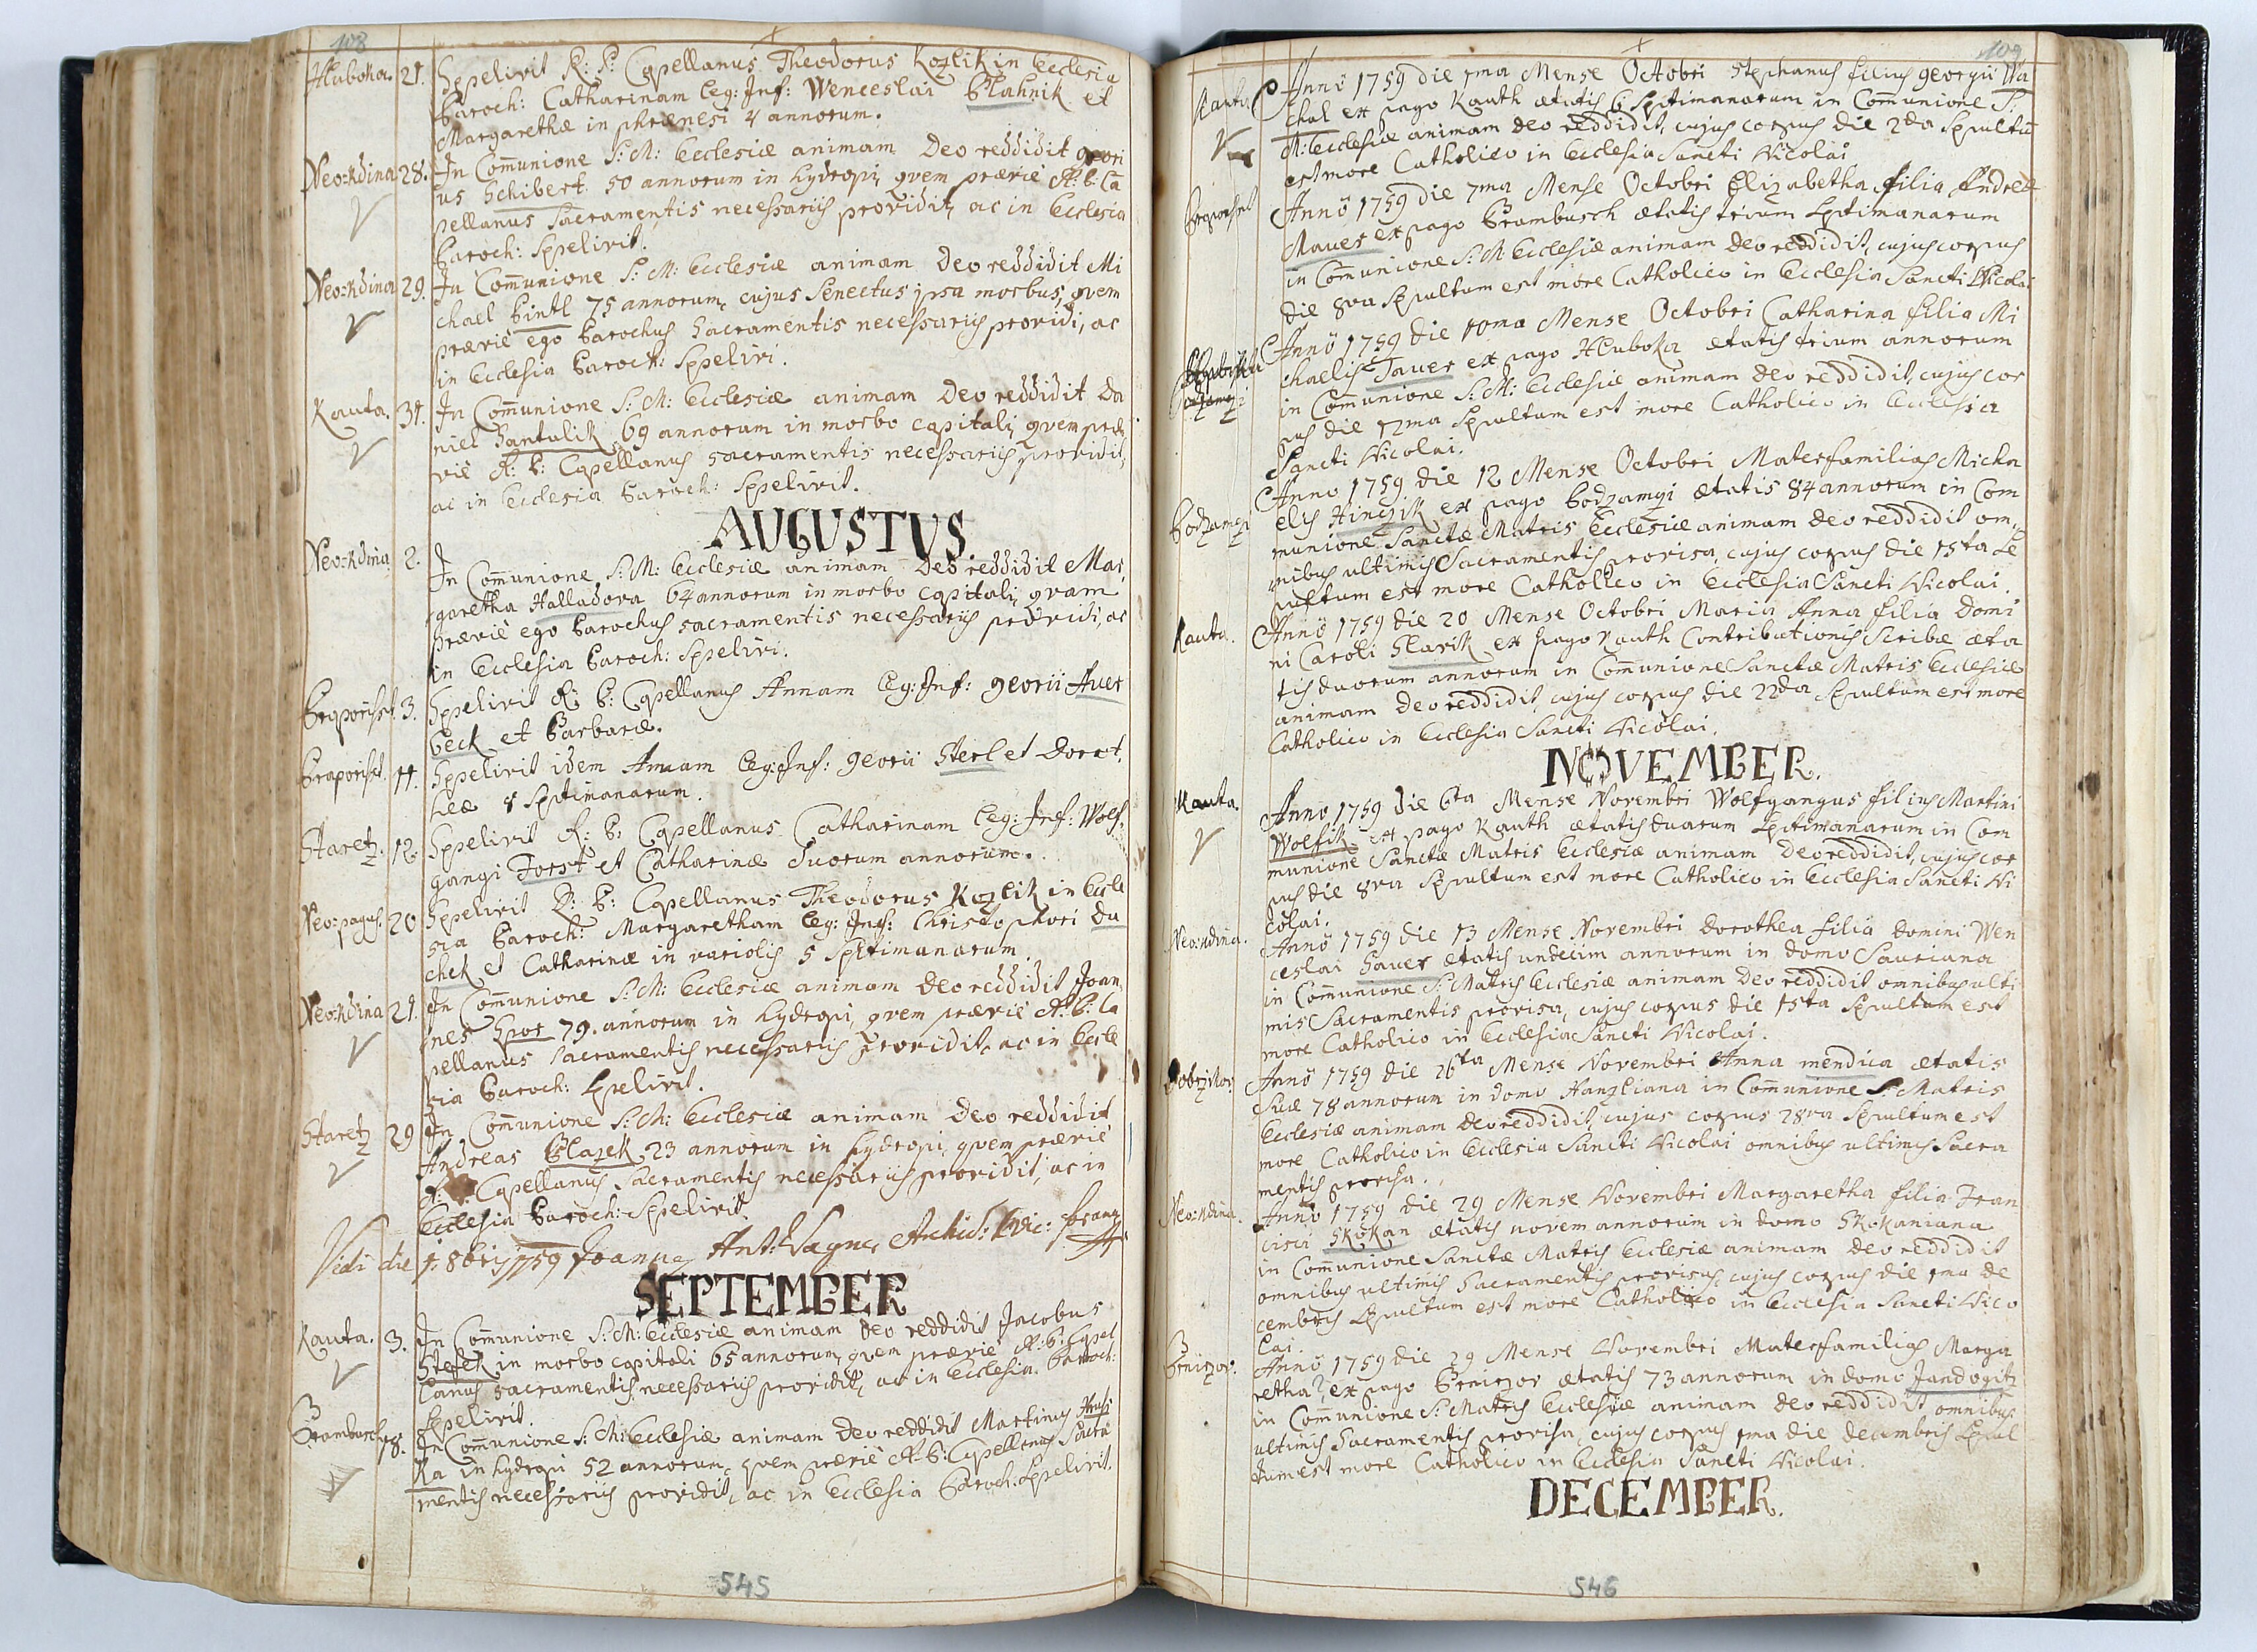 108
Hluboka. 21. Sepelivit R: P: Capellanus Theodorus Kozlik in Ecclesia
Paroch: Catharinam leg: Inf: Wenceslai Blahnik et
Margarethæ in phrænesi 4 annorum.
Neo=Kdina 28. In Com̄unione S: M: Ecclesiæ animam Deo reddidit Geori
us Schibert 50 annorum in hydropi, quem præviè R: P: Ca
pellanus Sacramentis necessariis providit, ac in Ecclesia
Paroch: Sepelivit.
Neo=Kdina 29. In Com̄unione S: M: Ecclesiæ animam Deo reddidit Mi
chael Bintl 75 annorum, cujus Senectus ipsa morbus, quem
præviè ego Parochus Sacramentis necessariis providi, ac
in Ecclesia Paroch: Sepelivi.
Kauta. 31. In Com̄unione S: M: Ecclesiæ animam Deo reddidit Da
niel Santulik 69 annorum in morbo capitali, quem præ
viè R: P: Capellanus Sacramentis necessariis providit,
ac in Ecclesia Paroch: Sepelivit.
AUGUSTUS.
Neo=Kdina 2. In Com̄unione S: M: Ecclesiæ animam Deo reddidit Mar
garetha Halladova 64 annorum in morbo capitali, quam
præviè ego Parochus Sacramentis necessariis providi, ac
in Ecclesia Paroch: Sepelivi.
3. Sepelivit R: P: Capellanus Annam leg: Inf: Georii Auer
beck et Barbaræ.
11. Sepelivit idem Annam leg: Inf: Georii Sterl et Doro
theæ 8 Septimanarum.
Staretz. 12. Sepelivit R: P: Capellanus Catharinam leg: Inf: Wolf
gangi Forst et Catharinæ duorum annorum.
Neo=pagus. 20 Sepelivit R: P: Capellanus Theodorus Kozlik in Eccle
sia Paroch: Margaretham leg: Inf: Christophori Du
chek et Catharinæ in variolis 5 Septimanarum.
Neo=Kdina 21. In Com̄unione S: M: Ecclesiæ animam Deo reddidit Joan
nes Spor 79. annorum in hydropi, quem præviè R: P: Ca
pellanus Sacramentis necessariis providit, ac in Eccle
sia Paroch: Sepelivit.
Staretz 29 In Com̄unione S: M: Ecclesiæ animam Deo reddidit
Andreas Blazek 23 annorum in hydropi, quem præviè
R: Capellanus Sacramentis necessariis providit, ac in
Ecclesia Paroch: Sepelivit.
Vidi die 1. 8bris 1759 Joannes Ant: Wagner Archid:
SEPTEMBER
Kauta. 3. In Com̄unione S: M: Ecclesiæ animam Deo reddidit Jacobus
Stefek in morbo capitali 65 annorum, quem præviè R: P: Capel
lanus Sacramentis necessariis providit, ac in Ecclesia Paroch:
Sepelivit.
Brambusch 8. In Com̄unione S: M: Ecclesiæ animam Deo reddidit Martinus Hrusch
Ka in hydropi 52 annorum, quem præviè R: P: Capellanus Sacra
mentis necessariis providit, ac in Ecclesia Paroch: Sepelivit.
545
109
Kauta Anno 1759 die 1ma Mense Octobri Stephanus filius Georgii Wa
chal ex pago Kauth ætatis 6 Septimanarum in Com̄unione S:
M: Ecclesiæ animam Deo reddidit, cujus corpus die 2da Sepultu
est more Catholico in Ecclesia Sancti Nicolai
Anno 1759 die 7ma Mense Octobri Elizabetha filia Andreæ
Mauer ex pago Brambusch ætatis trium Septimanarum
in Com̄unione S: M Ecclesiæ animam Deo reddidit, cujus corpus
die 8va Sepultum est more Catholico in Ecclesia Sancti Nicolai
Anno 1759 die 10ma Mense Octobri Catharina filia Mi
chaelis Tauer ex pago Hluboka ætatis trium annorum
in Com̄unione S: M: Ecclesiæ animam Deo reddidit, cujus cor
pus die 12ma Sepultum est more Catholico in Ecclesia
Sancti Nicolai.
Podzamczi Anno 1759 die 12 Mense Octobri Materfamilias Micha
elis Hinczik ex pago Podzamczi ætatis 84 annorum in Com
munione Sanctæ Matris Ecclesiæ animam Deo reddidit om
nibus ultimis Sacramentis provisa, cujus corpus die 15ta Se
pultum est more Catholico in Ecclesia Sancti Nicolai.
Kauta. Anno 1759 die 20 Mense Octobri Maria Anna filia Domi
ni Caroli Slavik ex pago Kauth Contributionis Scribæ æta
tis duorum annorum in Com̄unione Sanctæ Matris Ecclesiæ
animam Deo reddidit, cujus corpus die 22da Sepultum est more
Catholico in Ecclesia Sancti Nicolai.
NOVEMBER.
Kauta. Anno 1759 die 6ta Mense Novembri Wolfgangus filius Martini
Wolfik ex pago Kauth ætatis duarum Septimanarum in Com
munione Sanctæ Matris Ecclesiæ animam Deo reddidit, cujus cor
pus die 8va Sepultum est more Catholico in Ecclesia Sancti Ni
colai.
Neo=Kdina. Anno 1759 die 13 Mense Novembri Dorothea filia Domini Wen
ceslai Sauer ætatis undecim annorum in domo Sauriana
in Com̄unione S: Matris Ecclesiæ animam Deo reddidit omnibus ulti
mis Sacramentis provisa, cujus corpus die 15ta Sepultum est
more Catholico in Ecclesia Sancti Nicolai.
Dobrzikov Anno 1759 die 26ta Mense Novembri Anna mendica ætatis
suæ 78 annorum in domo Hanzliana in Com̄unione S: Matris
Ecclesiæ animam Deo reddidit, cujus corpus 28va Sepultum est
more Catholico in Ecclesia Sancti Nicolai omnibus ultimis Sacra
mentis provisa.
Neo=Kdina. Anno 1759 die 29 Mense Novembri Margaretha filia Fran
cisci Skokan ætatis novem annorum in domo Skokaniana
in Com̄unione Sanctæ Matris Ecclesiæ animam Deo reddidit
omnibus ultimis Sacramentis provisus, cujus corpus die 1ma De
cembris Sepultum est more Catholico in Ecclesia Sancti Nico
lai.
Brniczov. Anno 1759 die 29 Mense Novembri Materfamilias Marga
retha? ex pago Brniczov ætatis 73 annorum in domo Jandogitz
in Com̄unione S: Matris Ecclesiæ animam Deo reddidit omnibus
ultimis Sacramentis provisa, cujus corpus 1ma die Decembris Sepul
tum est more Catholico in Ecclesia Sancti Nicolai.
DECEMBER.
546